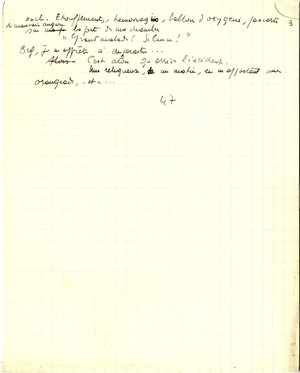 3
Etouffements, hemorragies, ballon d'oxygene, pancarte
de mauvais augure sur la porte de ma chambre
"Grand malade! Silence!"
Bref, je m'apprête à disparaître...
C'est alors qu'arrive l'accident.
Une religieuse, un matin, en m'apportant une
orangeade, etc...
47